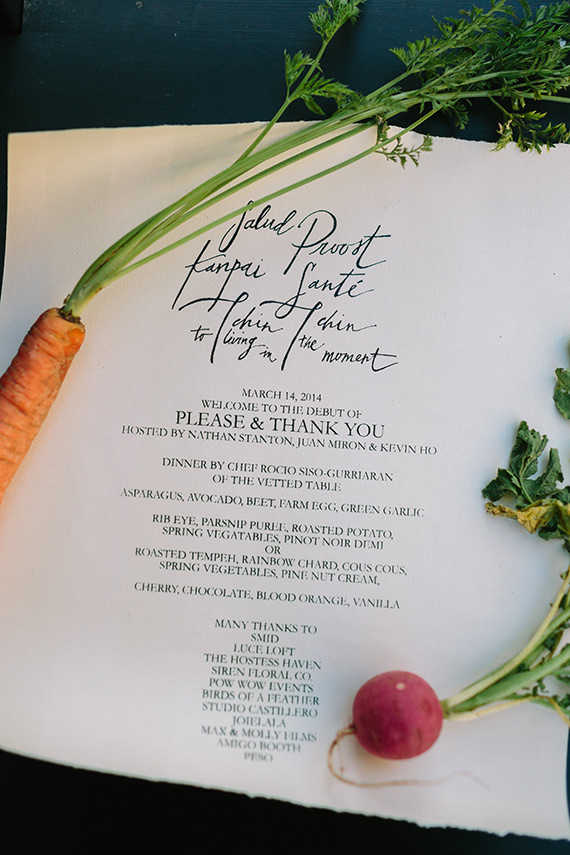 Salud Proost
Kanpai Santé
Tchin Tchin
to living in the moment
MARCH 14, 2014
WELCOME TO THE DEBUT OF
PLEASE & THANK YOU
HOSTED BY NATHAN STANTON, JUAN MIRON & KEVIN HO
DINNER BY CHEF ROCIO SISO-GURRIARAN
OF THE VETTED TABLE
ASPARAGUS, AVOCADO, BEET, FARM EGG, GREEN GARLIC
RIB EYE, PARSNIP PUREE, ROASTED POTATO,
SPRING VEGATABLES, PINOT NOIR DEMI
OR
ROASTED TEMPEH, RAINBOW CHARD, COUS COUS,
SPRING VEGETABLES, PINE NUT CREAM,
CHERRY, CHOCOLATE, BLOOD ORANGE, VANILLA
MANY THANKS TO
SMID
LUCE LOFT
THE HOSTESS HAVEN
SIREN FLORAL CO.
POW WOW EVENTS
BIRDS OF A FEATHER
STUDIO CASTILLERO
JOIELALA
MAX & MOLLY FILMS
AMIGO BOOTH
PESO